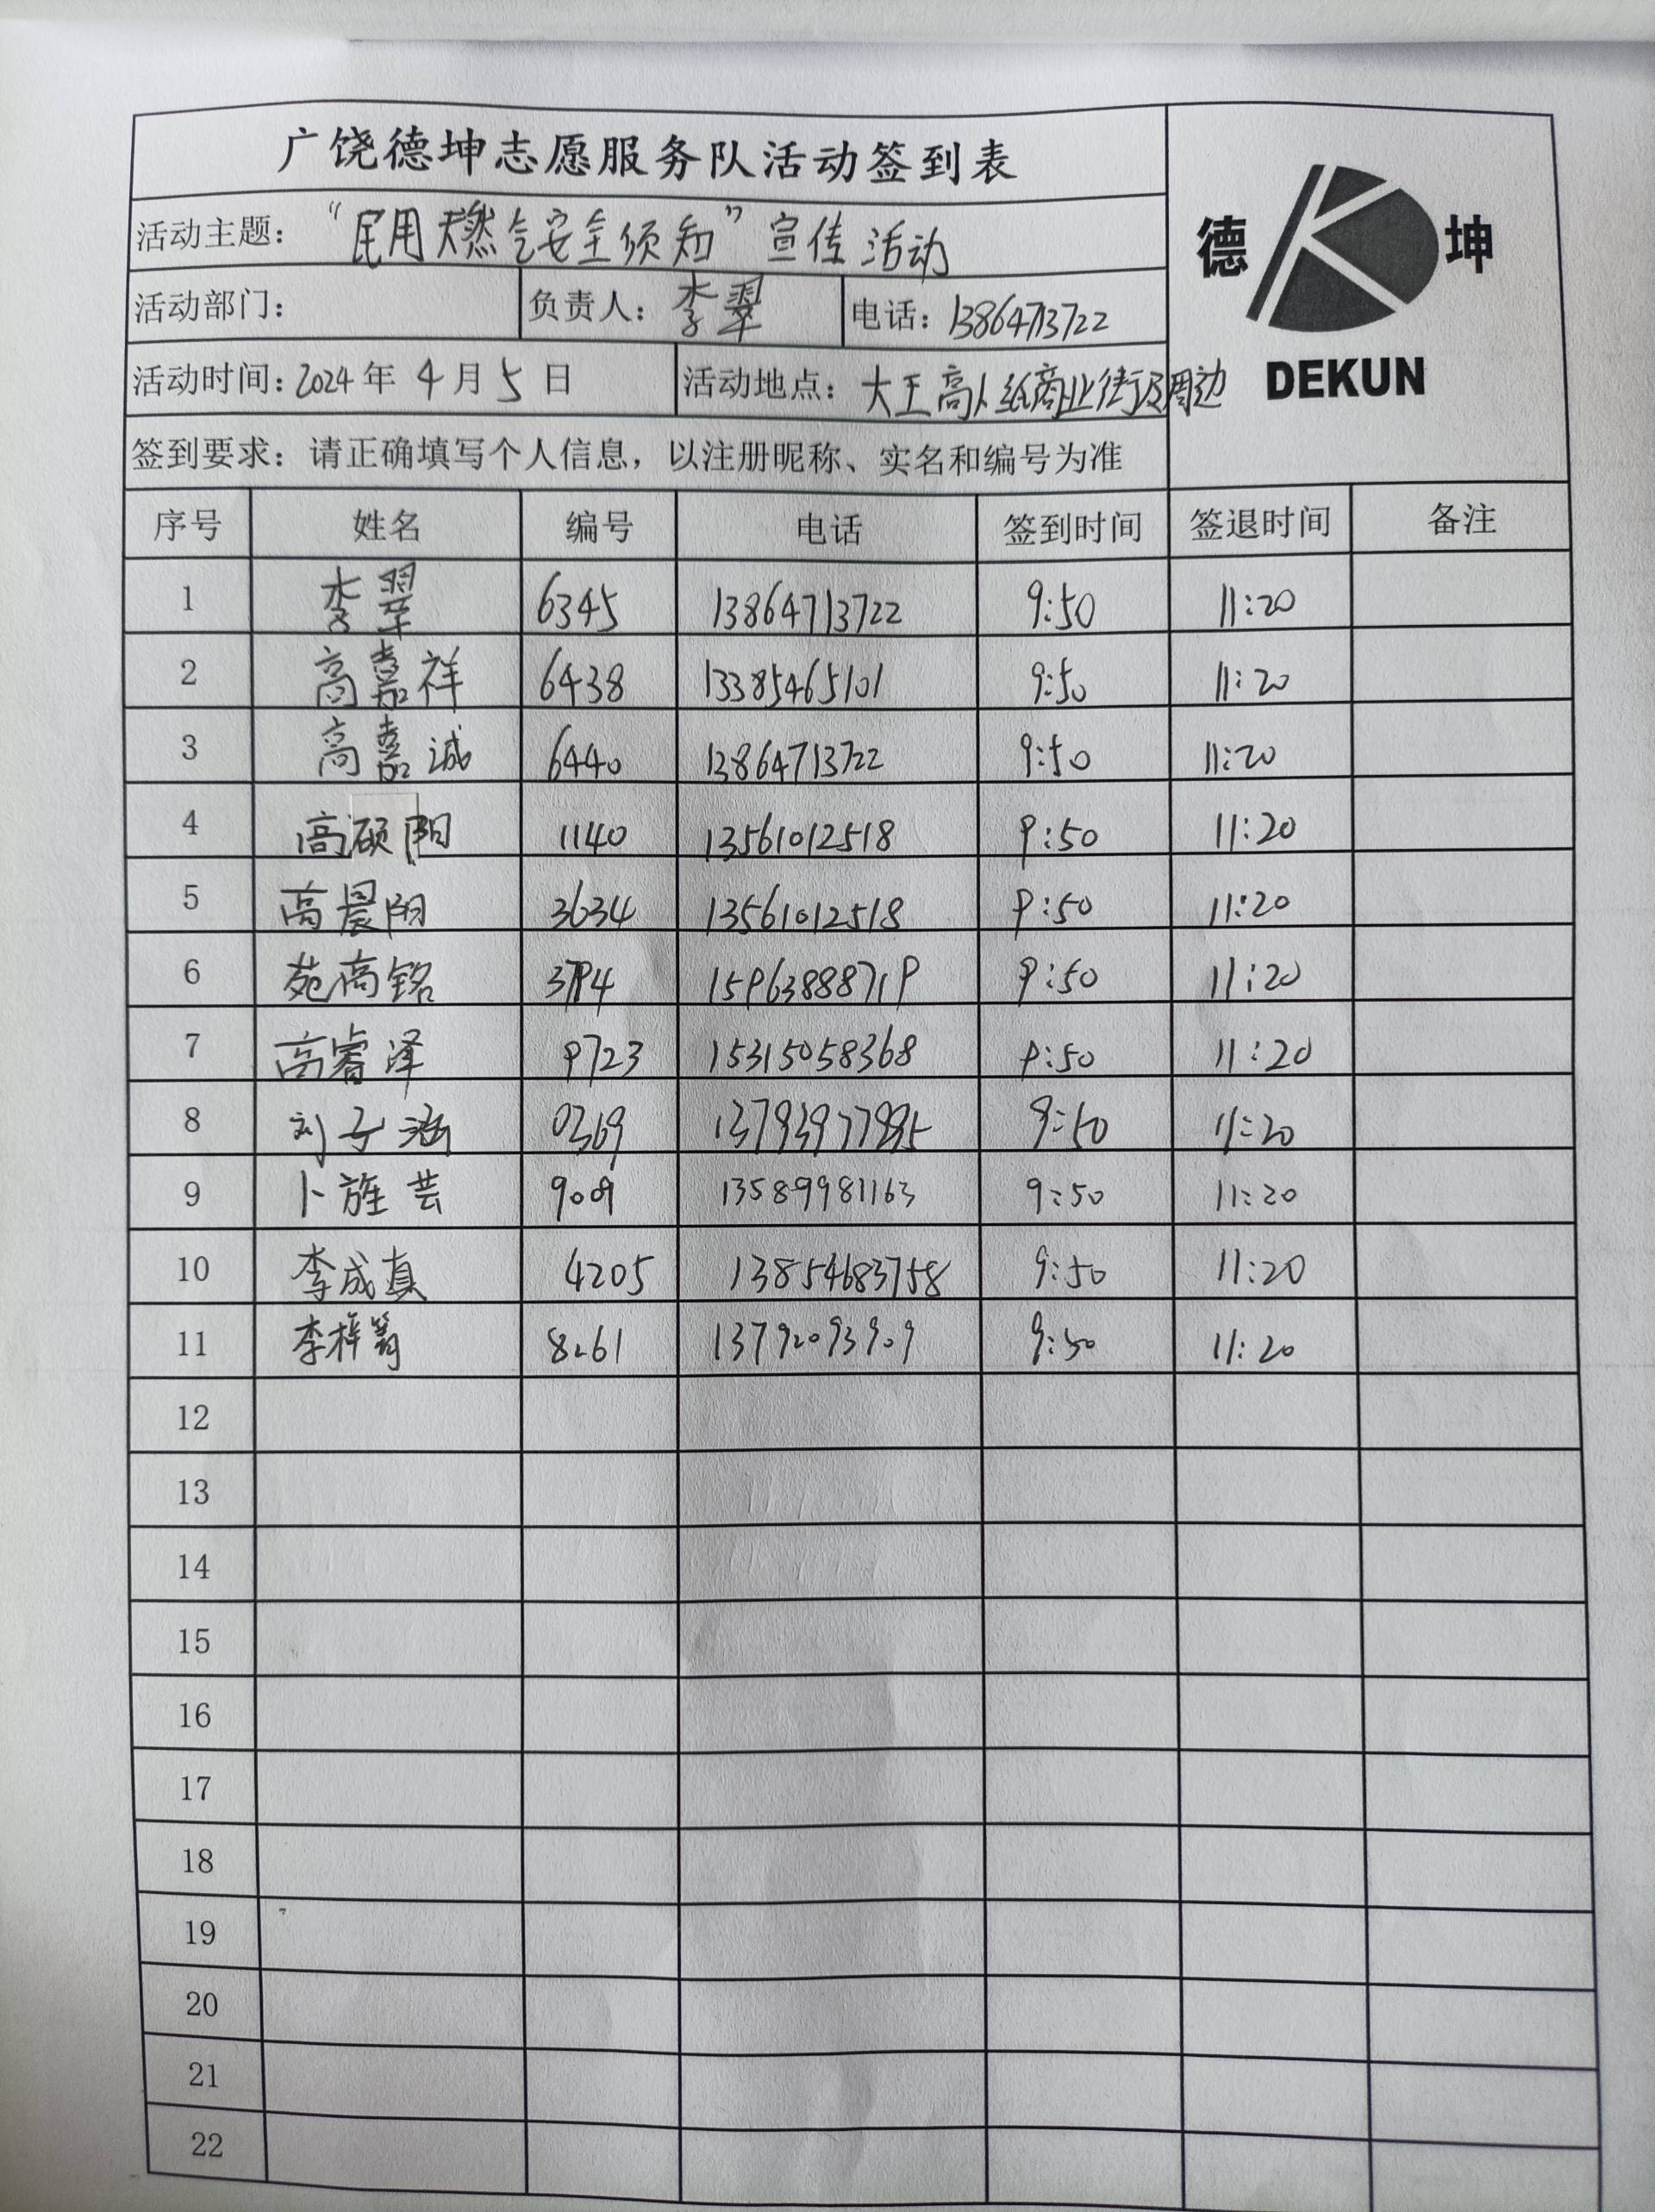 广饶德坤志愿服务队活动签到表
德 坤
DEKUN
活动主题：“民用天燃气安全须知”宣传活动
活动部门： 负责人：李翠 电话：13864713722
活动时间：2024年4月5日 活动地点：大王高 商业街及周边
签到要求：请正确填写个人信息，以注册昵称、实名和编号为准
序号 姓名 编号 电话 签到时间 签退时间 备注
1 李翠 6345 13864713722 9:50 11:20
2 高嘉祥 6438 13385465101 9:50 11:20
3 高嘉诚 6440 13864713722 9:50 11:20
4 高硕阳 1140 13561012518 9:50 11:20
5 高晨阳 3634 13561012518 9:50 11:20
6 苑高铭 3794 15963888719 9:50 11:20
7 高睿泽 9723 15315058368 9:50 11:20
8 刘子涵 0369 9:50 11:20
9 卜旌芸 9009 13589981163 9:50 11:20
10 李成真 4205 13854683758 9:50 11:20
11 李梓 8261 13792093909 9:50 11:20
12
13
14
15
16
17
18
19
20
21
22